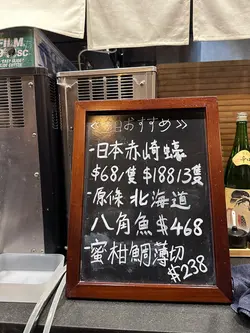 FILM
SC
≪今日おすすめ≫
-日本赤崎蠔
$68/隻 $188/3隻
-原條北海道
八角魚 $468
-蜜柑鯛薄切
$238